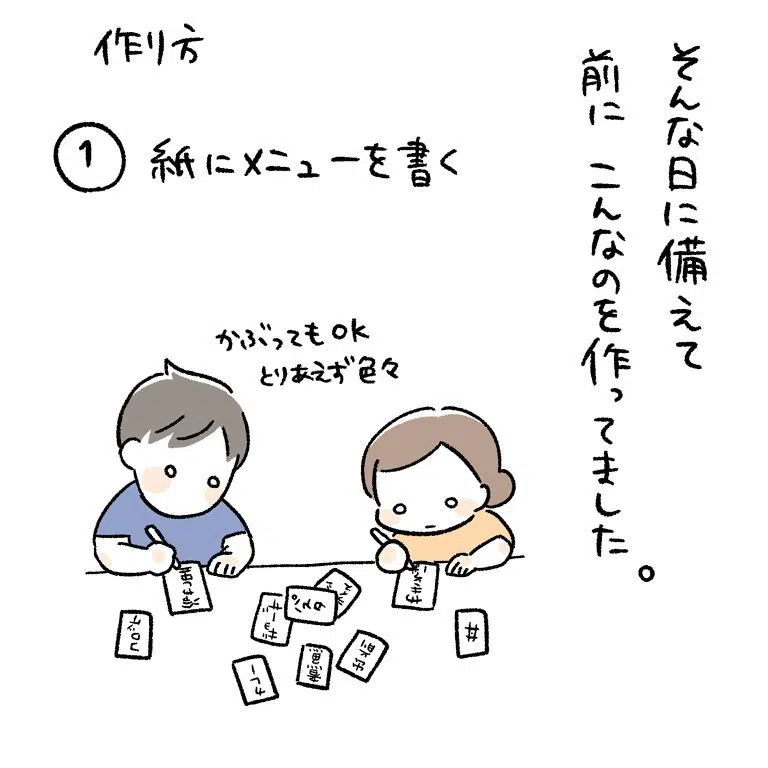 そんな日に備えて
前に こんなのを作ってました。
作り方
① 紙にメニューを書く
かぶってもOK
とりあえず色々
丼
カレー